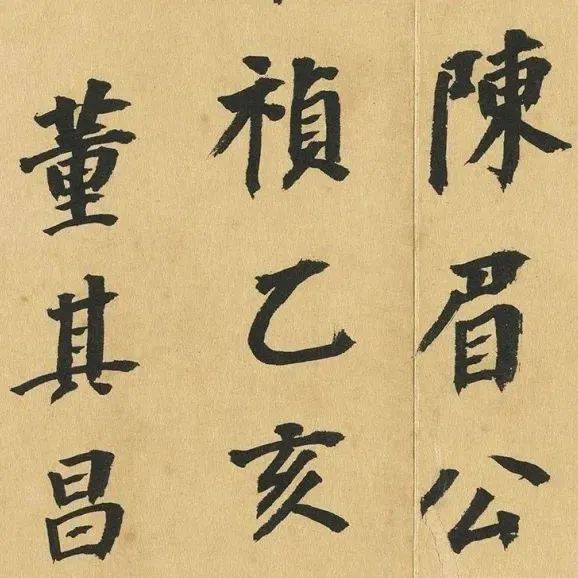 陳眉公
禎乙亥
董其昌